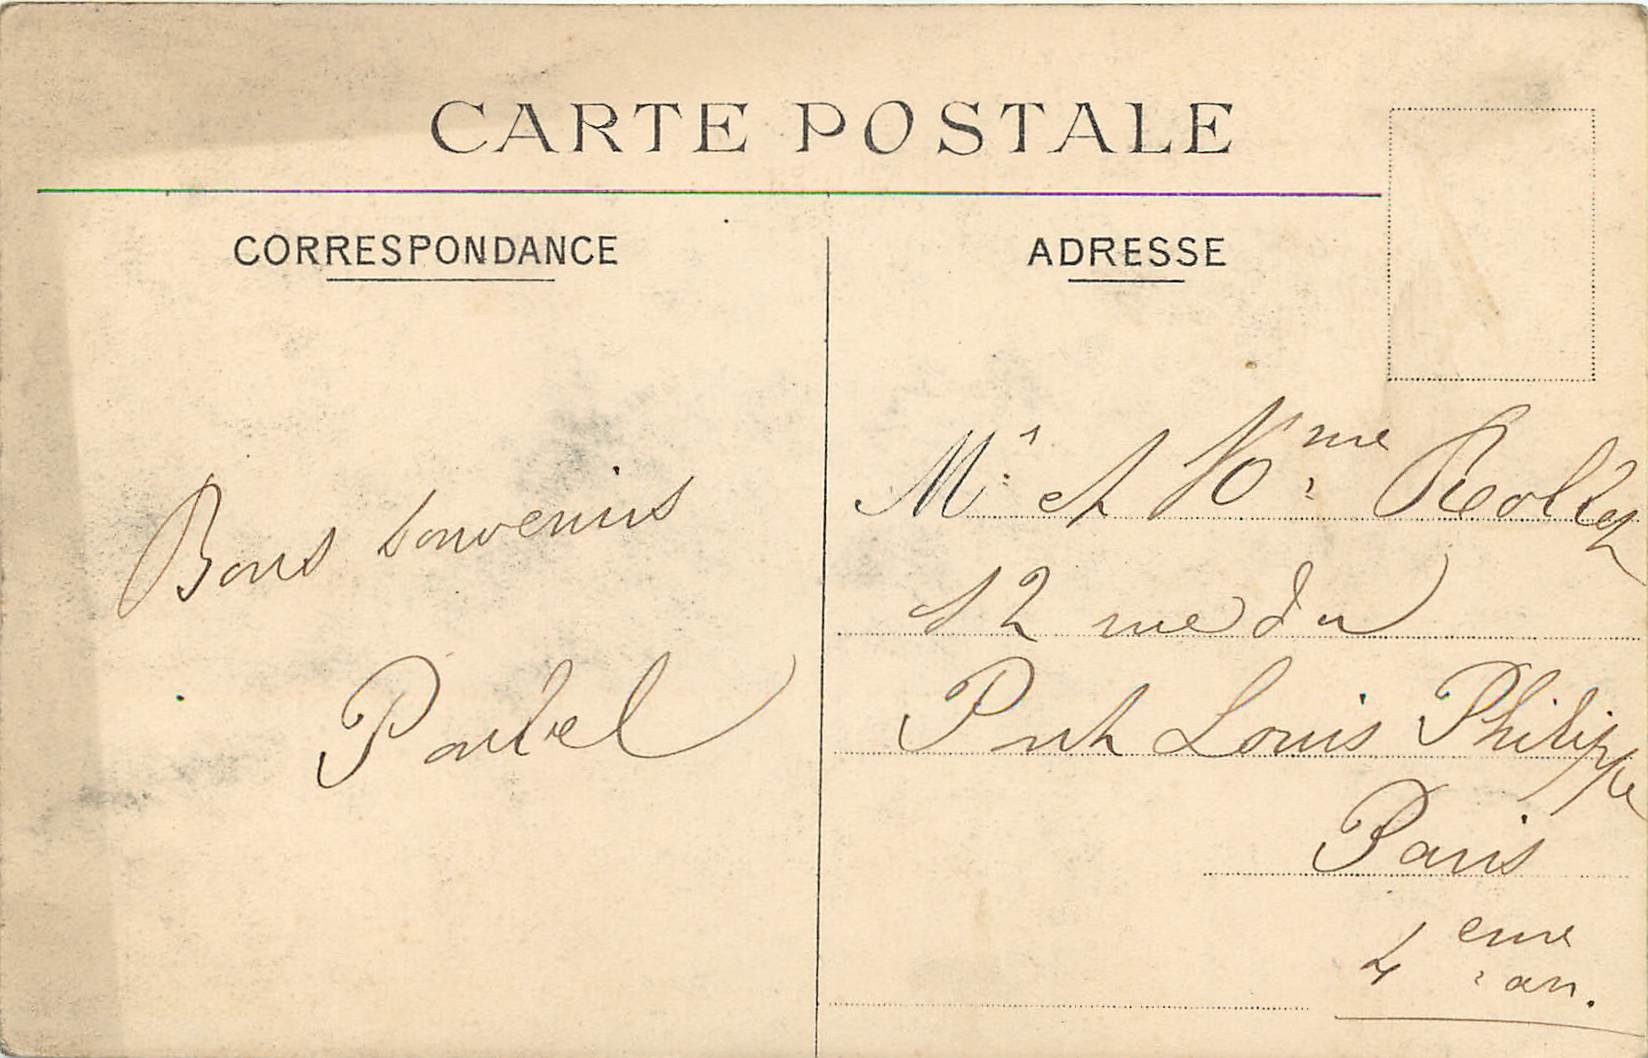 CARTE POSTALE
CORRESPONDANCE
ADRESSE
Bons souvenirs
Mr et Vme
12 rue du
Pont Louis Philippe
Paris
4 eme arr.